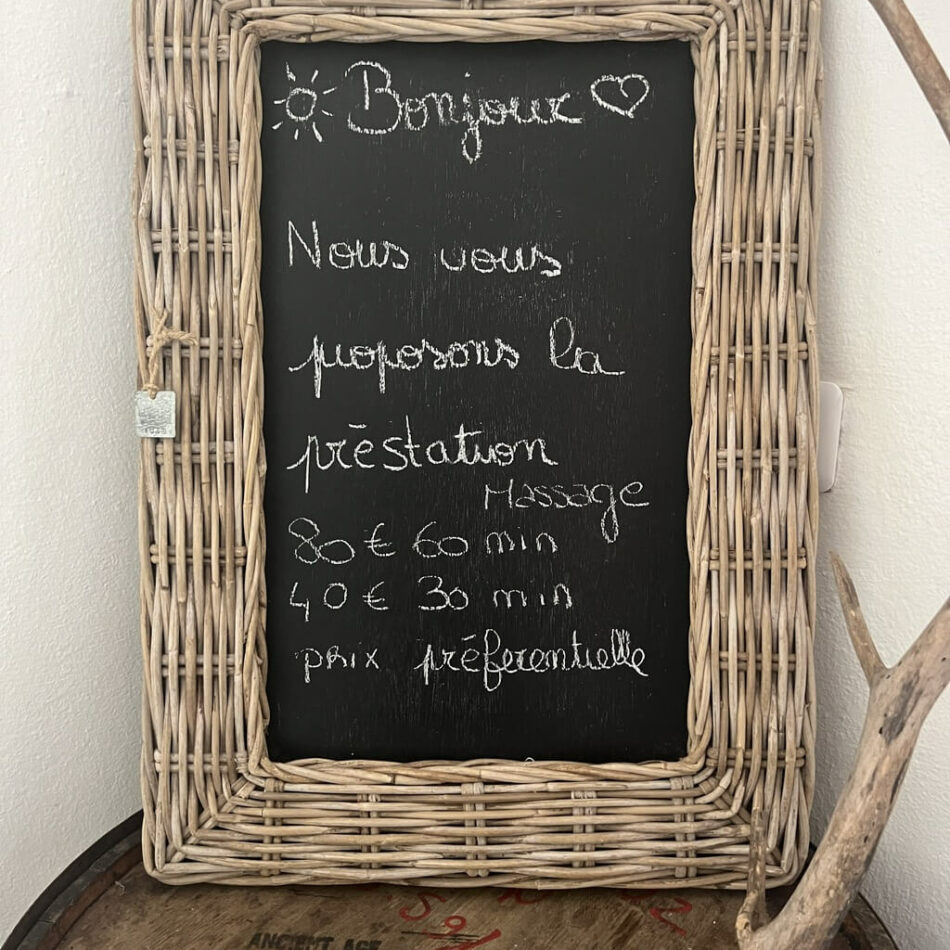 Bonjour
Nous vous
proposons la
préstation
Massage
80 € 60 min
40 € 30 min
prix préferentielle
ANCIENT AGE